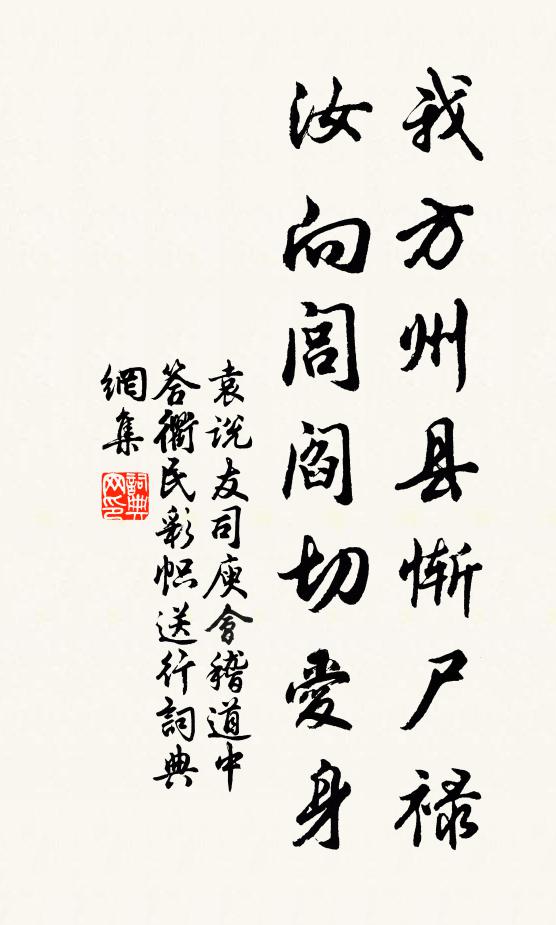 我方州县惭尸禄
汝向闾阎切爱身
袁说友司庾會稽道中
答衢民彩帜送行词典
網集
詞典
网印